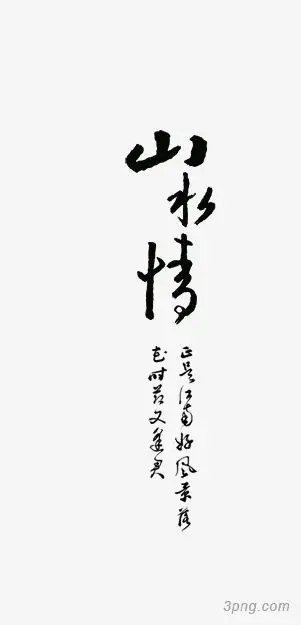 山水情
正是江南好风景落
花时节又逢君
3png.com